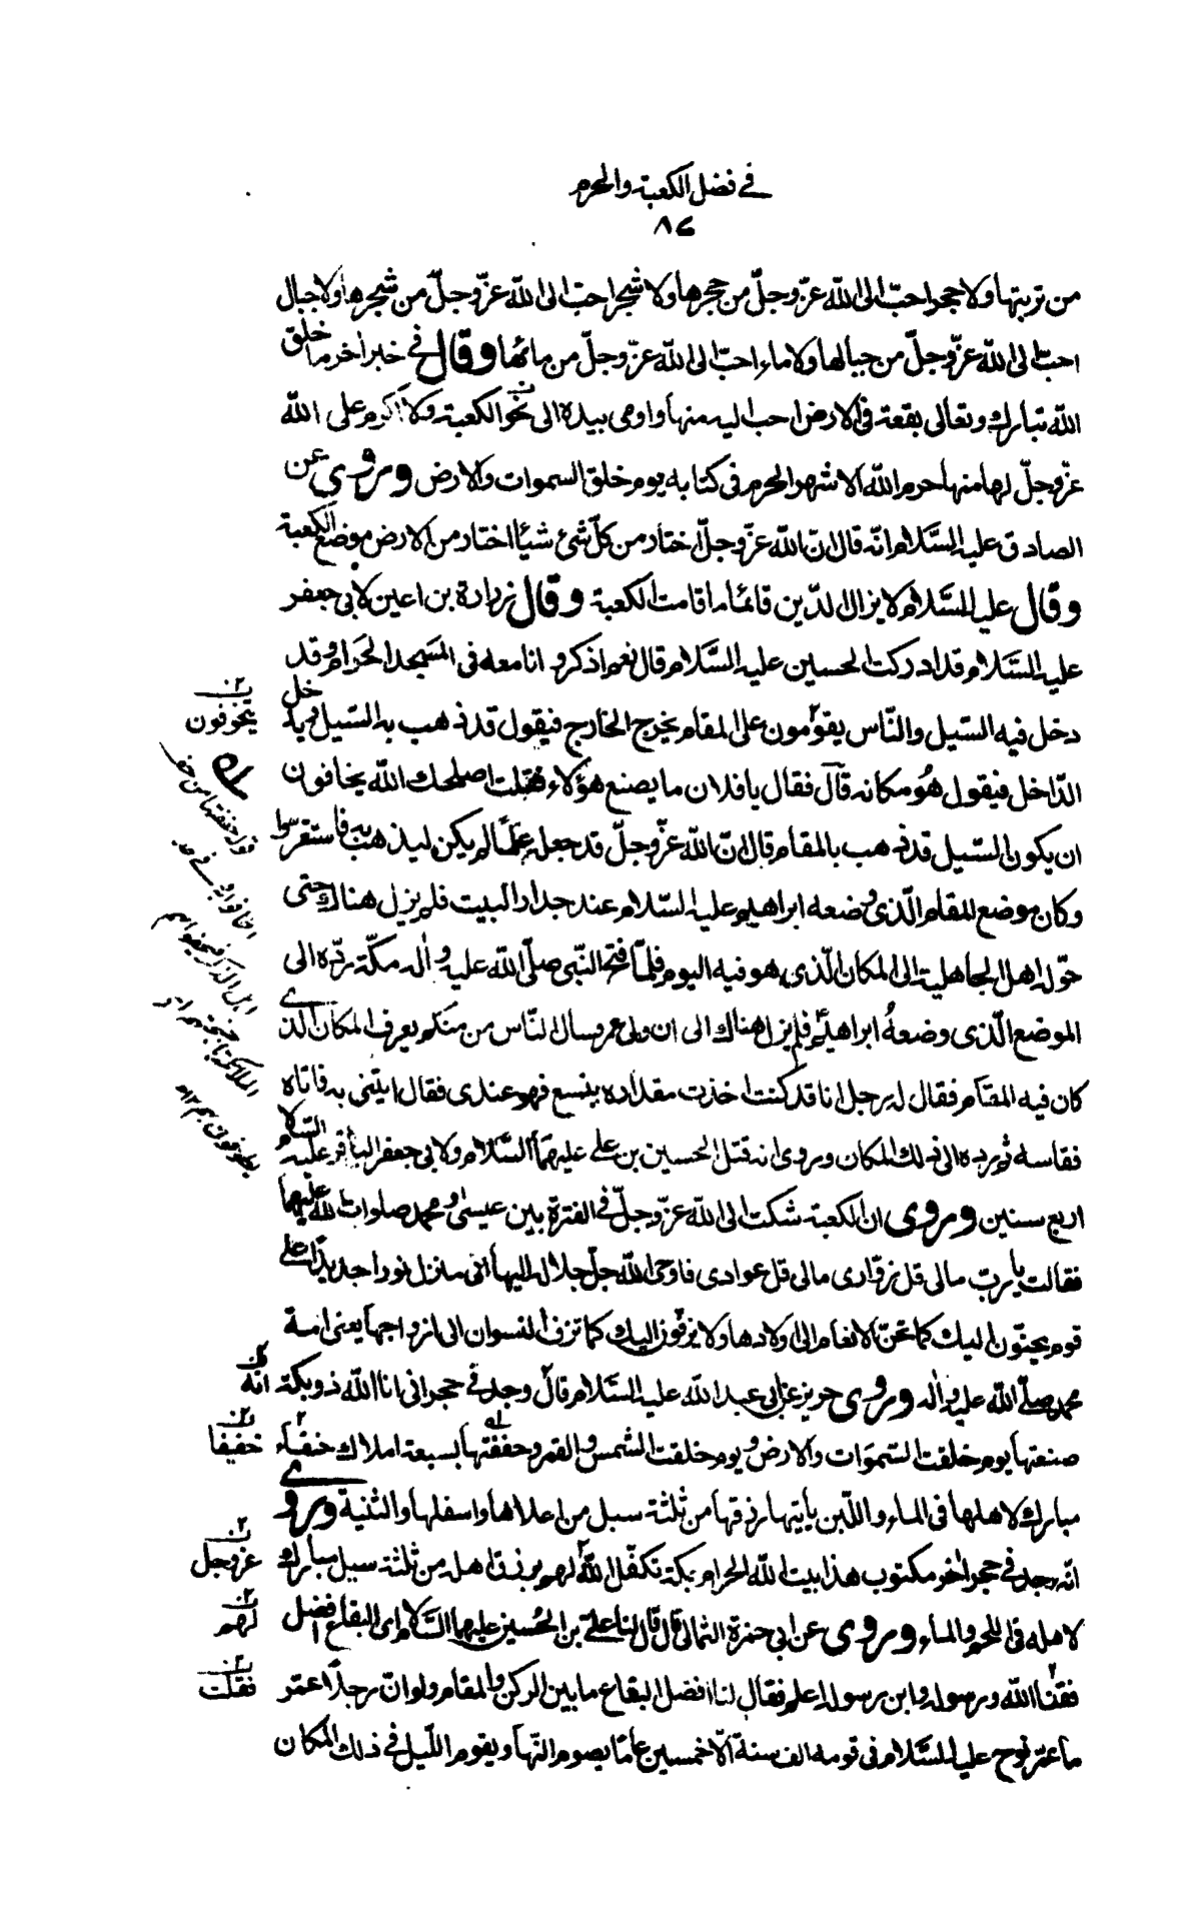 في فضل الكعبة والحرم
٨٤
من تربتها ولا حجرا حبّ الى الله عزّ وجلّ من حجرها ولا شجرا حبّ الى الله عزّ وجلّ من شجرها ولا جبال
احبّ الى الله عزّ وجلّ من جبالها ولا ماء احبّ الى الله عزّ وجلّ من مائها وقال في خبر اخر ما خلق
الله تبارك وتعالى بقعة في الارض احب اليه منها واومى بيده الى نحو الكعبة ولا اكرم على الله
عزّ وجلّ لها منها حرم الله الاشهر الحرم في كتابه يوم خلق السموات والارض وروى عن
الصادق عليه السَّلام انّه قال انّ الله عزّ وجلّ اختار من كلّ شئ شيئا اختار من الارض موضع الكعبة
وقال عليه السَّلام لا يزال الدّين قائما ما قامت الكعبة وقال زرارة بن اعين لابي جعفر
عليه السَّلام قد ادركت الحسين عليه السَّلام قال نعم اذكر وانا معه في المسجد الحَرام وقد
دخل فيه السّيل والنّاس يقومون على المقام يخرج الخارج فيقول قد ذهب به السّيل ويدخل
الدّاخل فيقول هُو مكانه قال فقال يا فلان ما يصنع هؤلاء فقلت اصلحك الله يخافون
ان يكون السّيل قد ذهب بالمقام قال انّ الله عزّ وجلّ قد جعله عَلَماً لم يكن ليذهب به فاستقروا
وكان موضع المقام الّذى وضعه ابراهيم عليه السّلام عند جدار البيت فلم يزل هناك حتى
حوّله اهل الجاهلية الى المكان الّذى هو فيه اليوم فلمّا فتح النّبي صلّى الله عليه واله مكّة ردّه الى
الموضع الّذى وضعهُ ابراهيم فلم يزل هناك الى ان ولى عمر وسال النّاس من منكم يعرف المكان الذي
كان فيه المقام فقال له رجل انا قد كنت اخذت مقداره بنسع فهو عندى فقال ايتنى به فاتاه
فقاسه ثم رده الى ذلك المكان وروى انه قتل الحسين بن على عليهما السَّلام ولابي جعفر الباقر عليه السّلام
اربع سنين وروى ان الكعبة شكت الى الله عزّ وجلّ في الفترة بين عيسى ومحمد صلوات الله عليهما
فقالت يا ربّ مالى قل زوّارى مالى قل عوادى فاوحى الله جلّ جلاله اليها انى منزل نورا جديدا على
قوم يحنّون اليك كما تحنّ الانعام الى اولادها ولا يزفون اليك كما تزف النسوان الى ازواجها يعنى امة
محمد صلّى الله عليه واله وروى حريز عن ابى عبد الله عليه السَّلام قال وجد في حجر انى انا الله ذو بكة
انّه
صنعتها يوم خلقت السّموَات والارض ويوم خلقت الشمس والقمر وحففتها بسبعة املاك حنفاء
خفيفا
مبارك لاهلها في الماء واللّبن يأتيها رزقها من ثلثة سبل من اعلاها واسفلها والثنية وروى
انّه وجد في حجر اخر مكتوب هذا بيت الله الحرام بكة تكفّل الله لهم برزق اهله من ثلثة سبل مبارك
عزّ وجل
لاهله في اللحم والماء وروى عن ابى حمزة الثمالى قال قال لنا علىّ بن الحُسين عليهما السَّلام اى البقاع افضل
لهم
فقلنا الله ورسوله وابن رسوله اعلم فقال لنا افضل البقاع ما بين الركن والمقام ولو انّ رجلاً عمّر
فقلت
ما عمّر نوح عليه السَّلام فى قومه الف سنة الّا خمسين عاما يصوم النّهار ويقوم اللّيل في ذلك المكان
يتخوفون